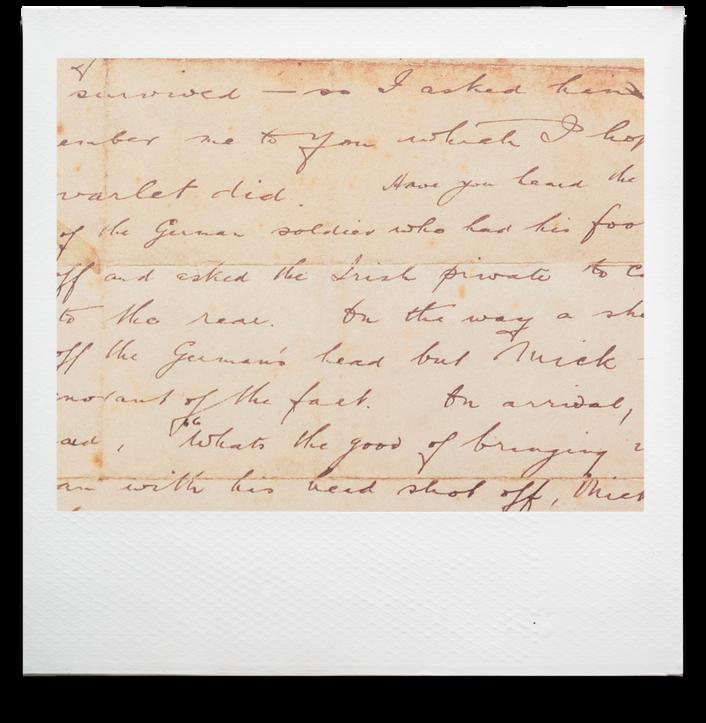 survived — so I asked him
ember me to you which I hop
varlet did. Have you heard the
of the German soldier who had his foo
ff and asked the Irish private to ca
to the rear. On the way a she
off the German's head but Mick
norant of the fact. On arrival,
aid, "Whats the good of bringing
an with his head shot off, Mick